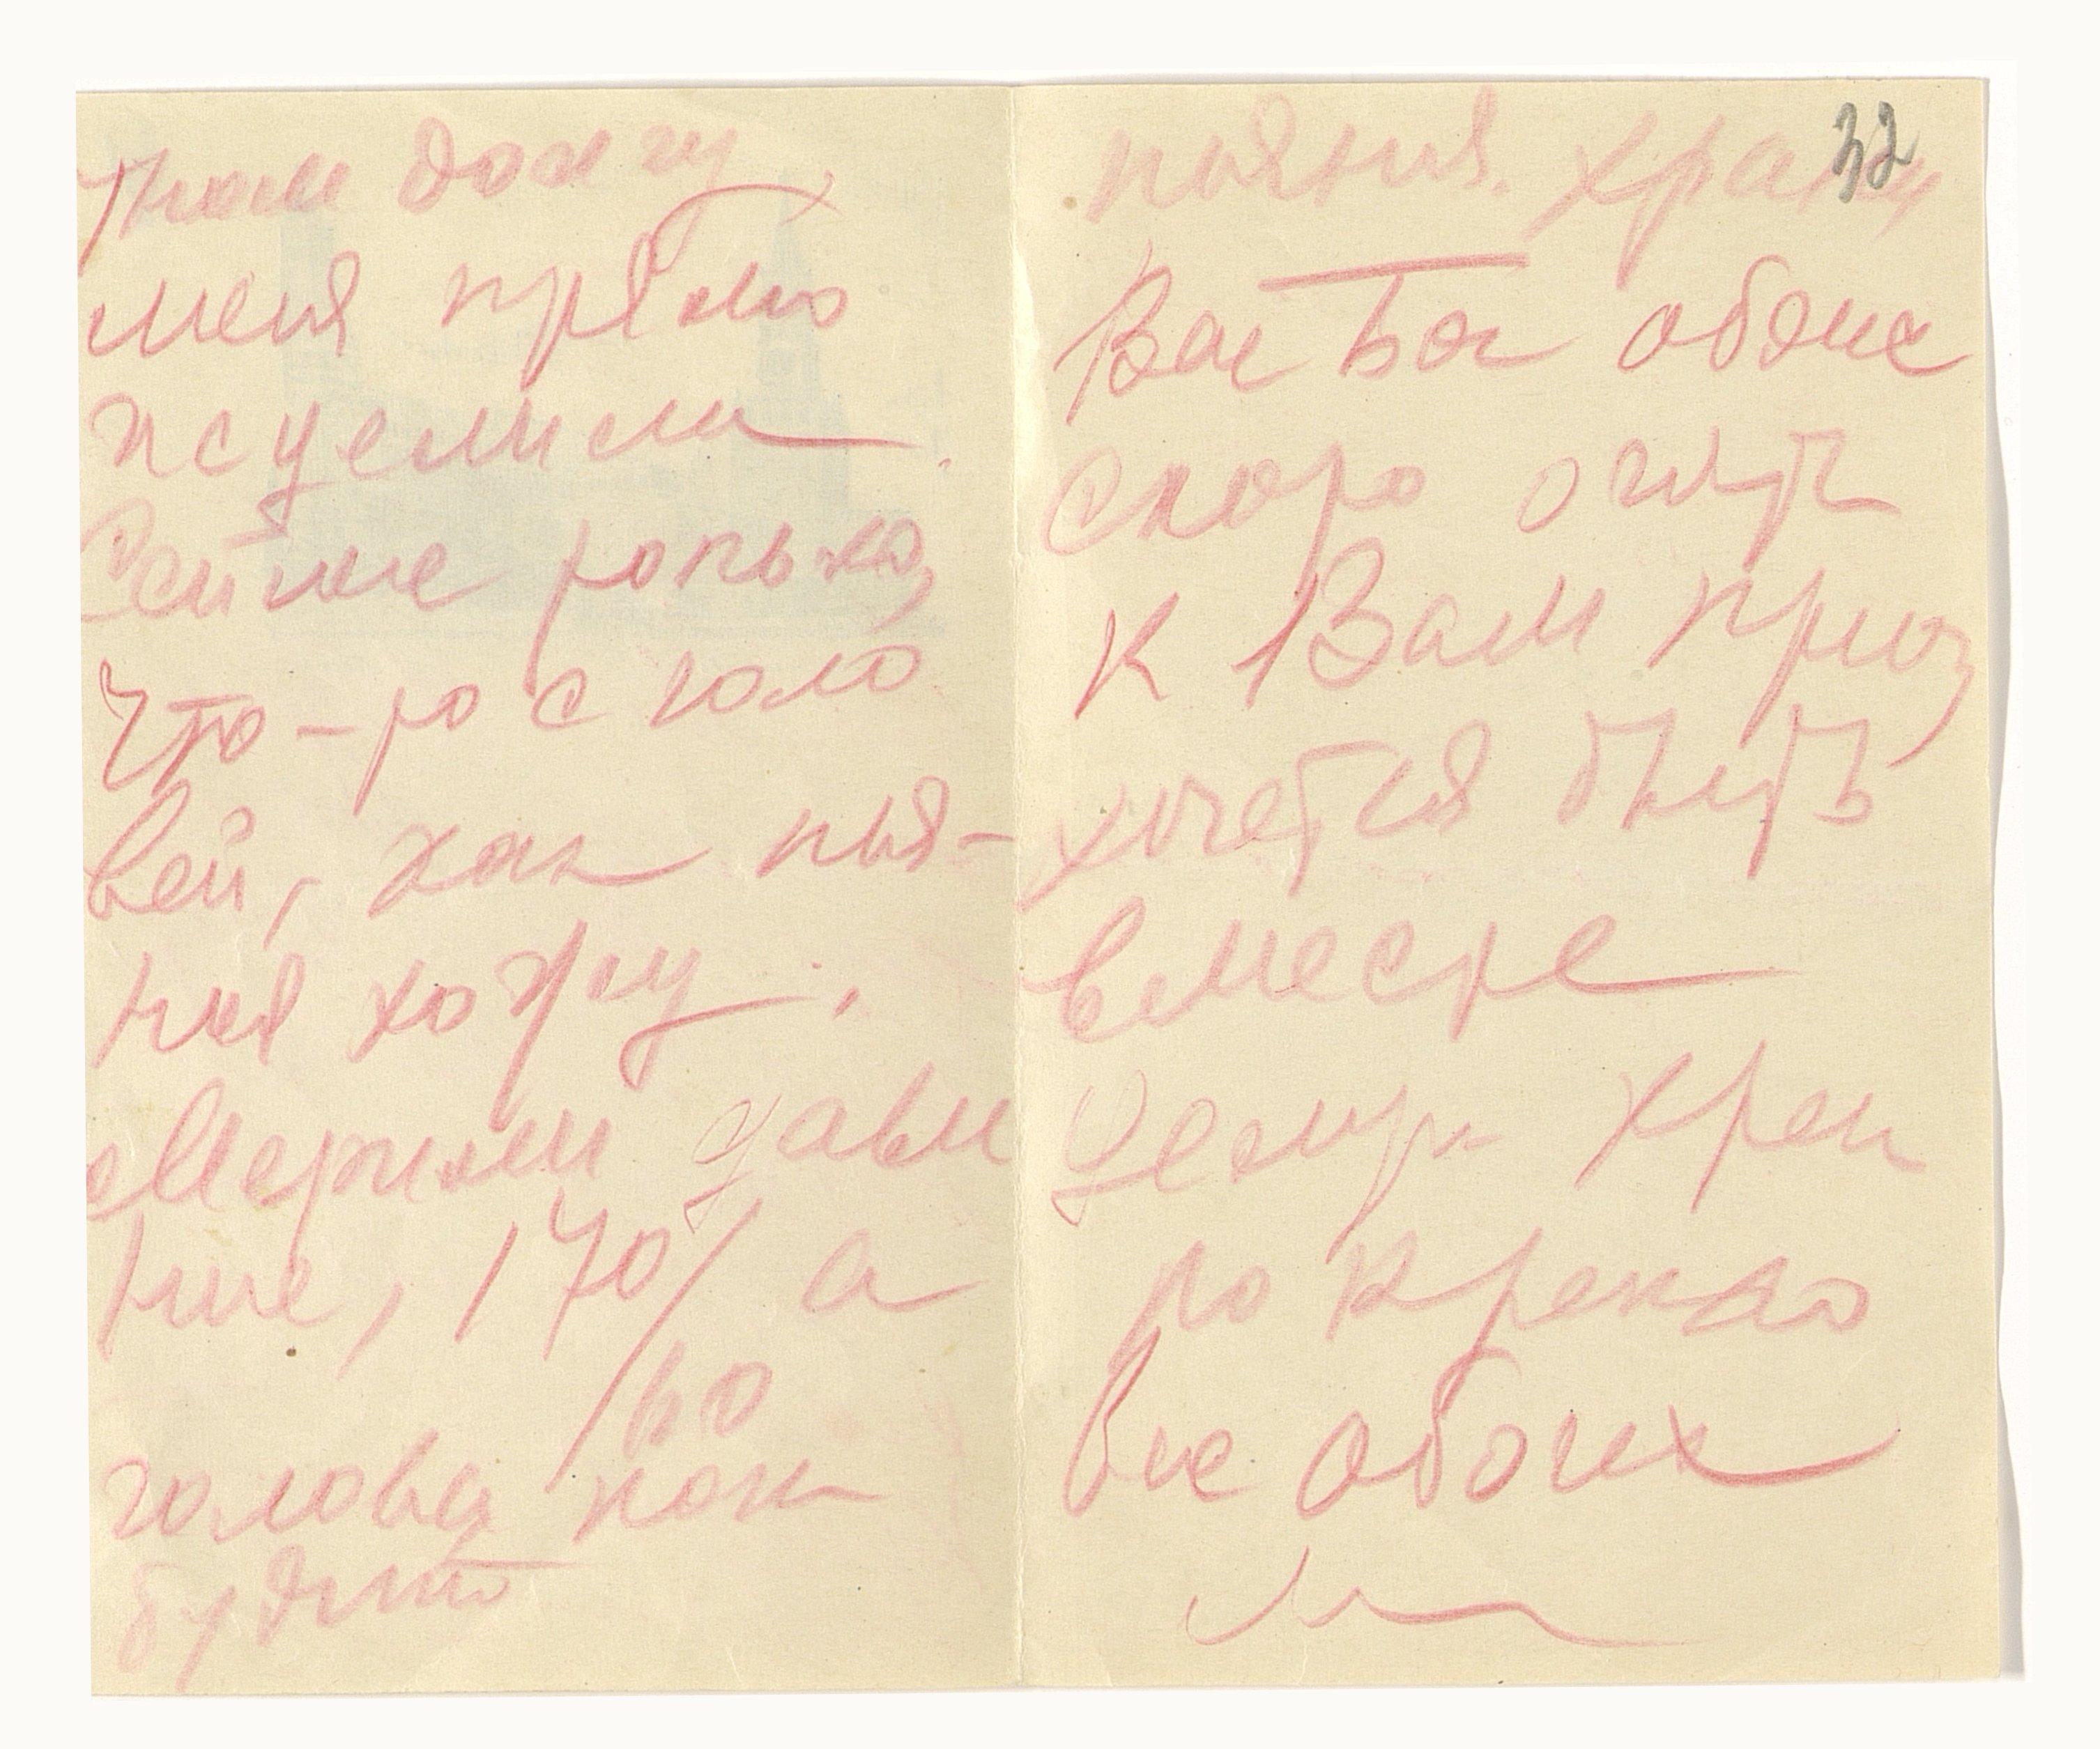 меня прямо
исцелила.
Сейчас только,
что-то с голо
вей, как пья-
ная хожу.
смерили давле
ние, 170/ а
во
голова как
будто
32
пьяная. храни
Вас Бог обоих
скоро опять
к Вам приз
хочется быть
вместе
Целую креп
ко крепко
Вас обоих